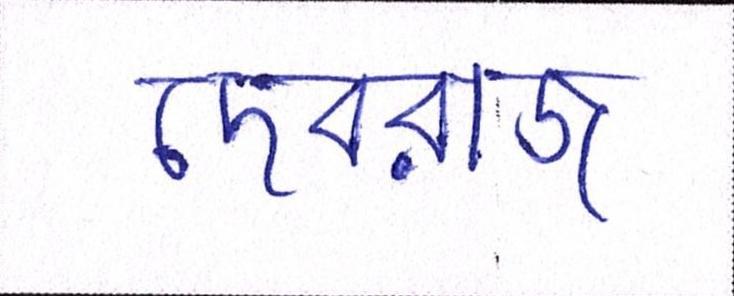 দেবরাজ